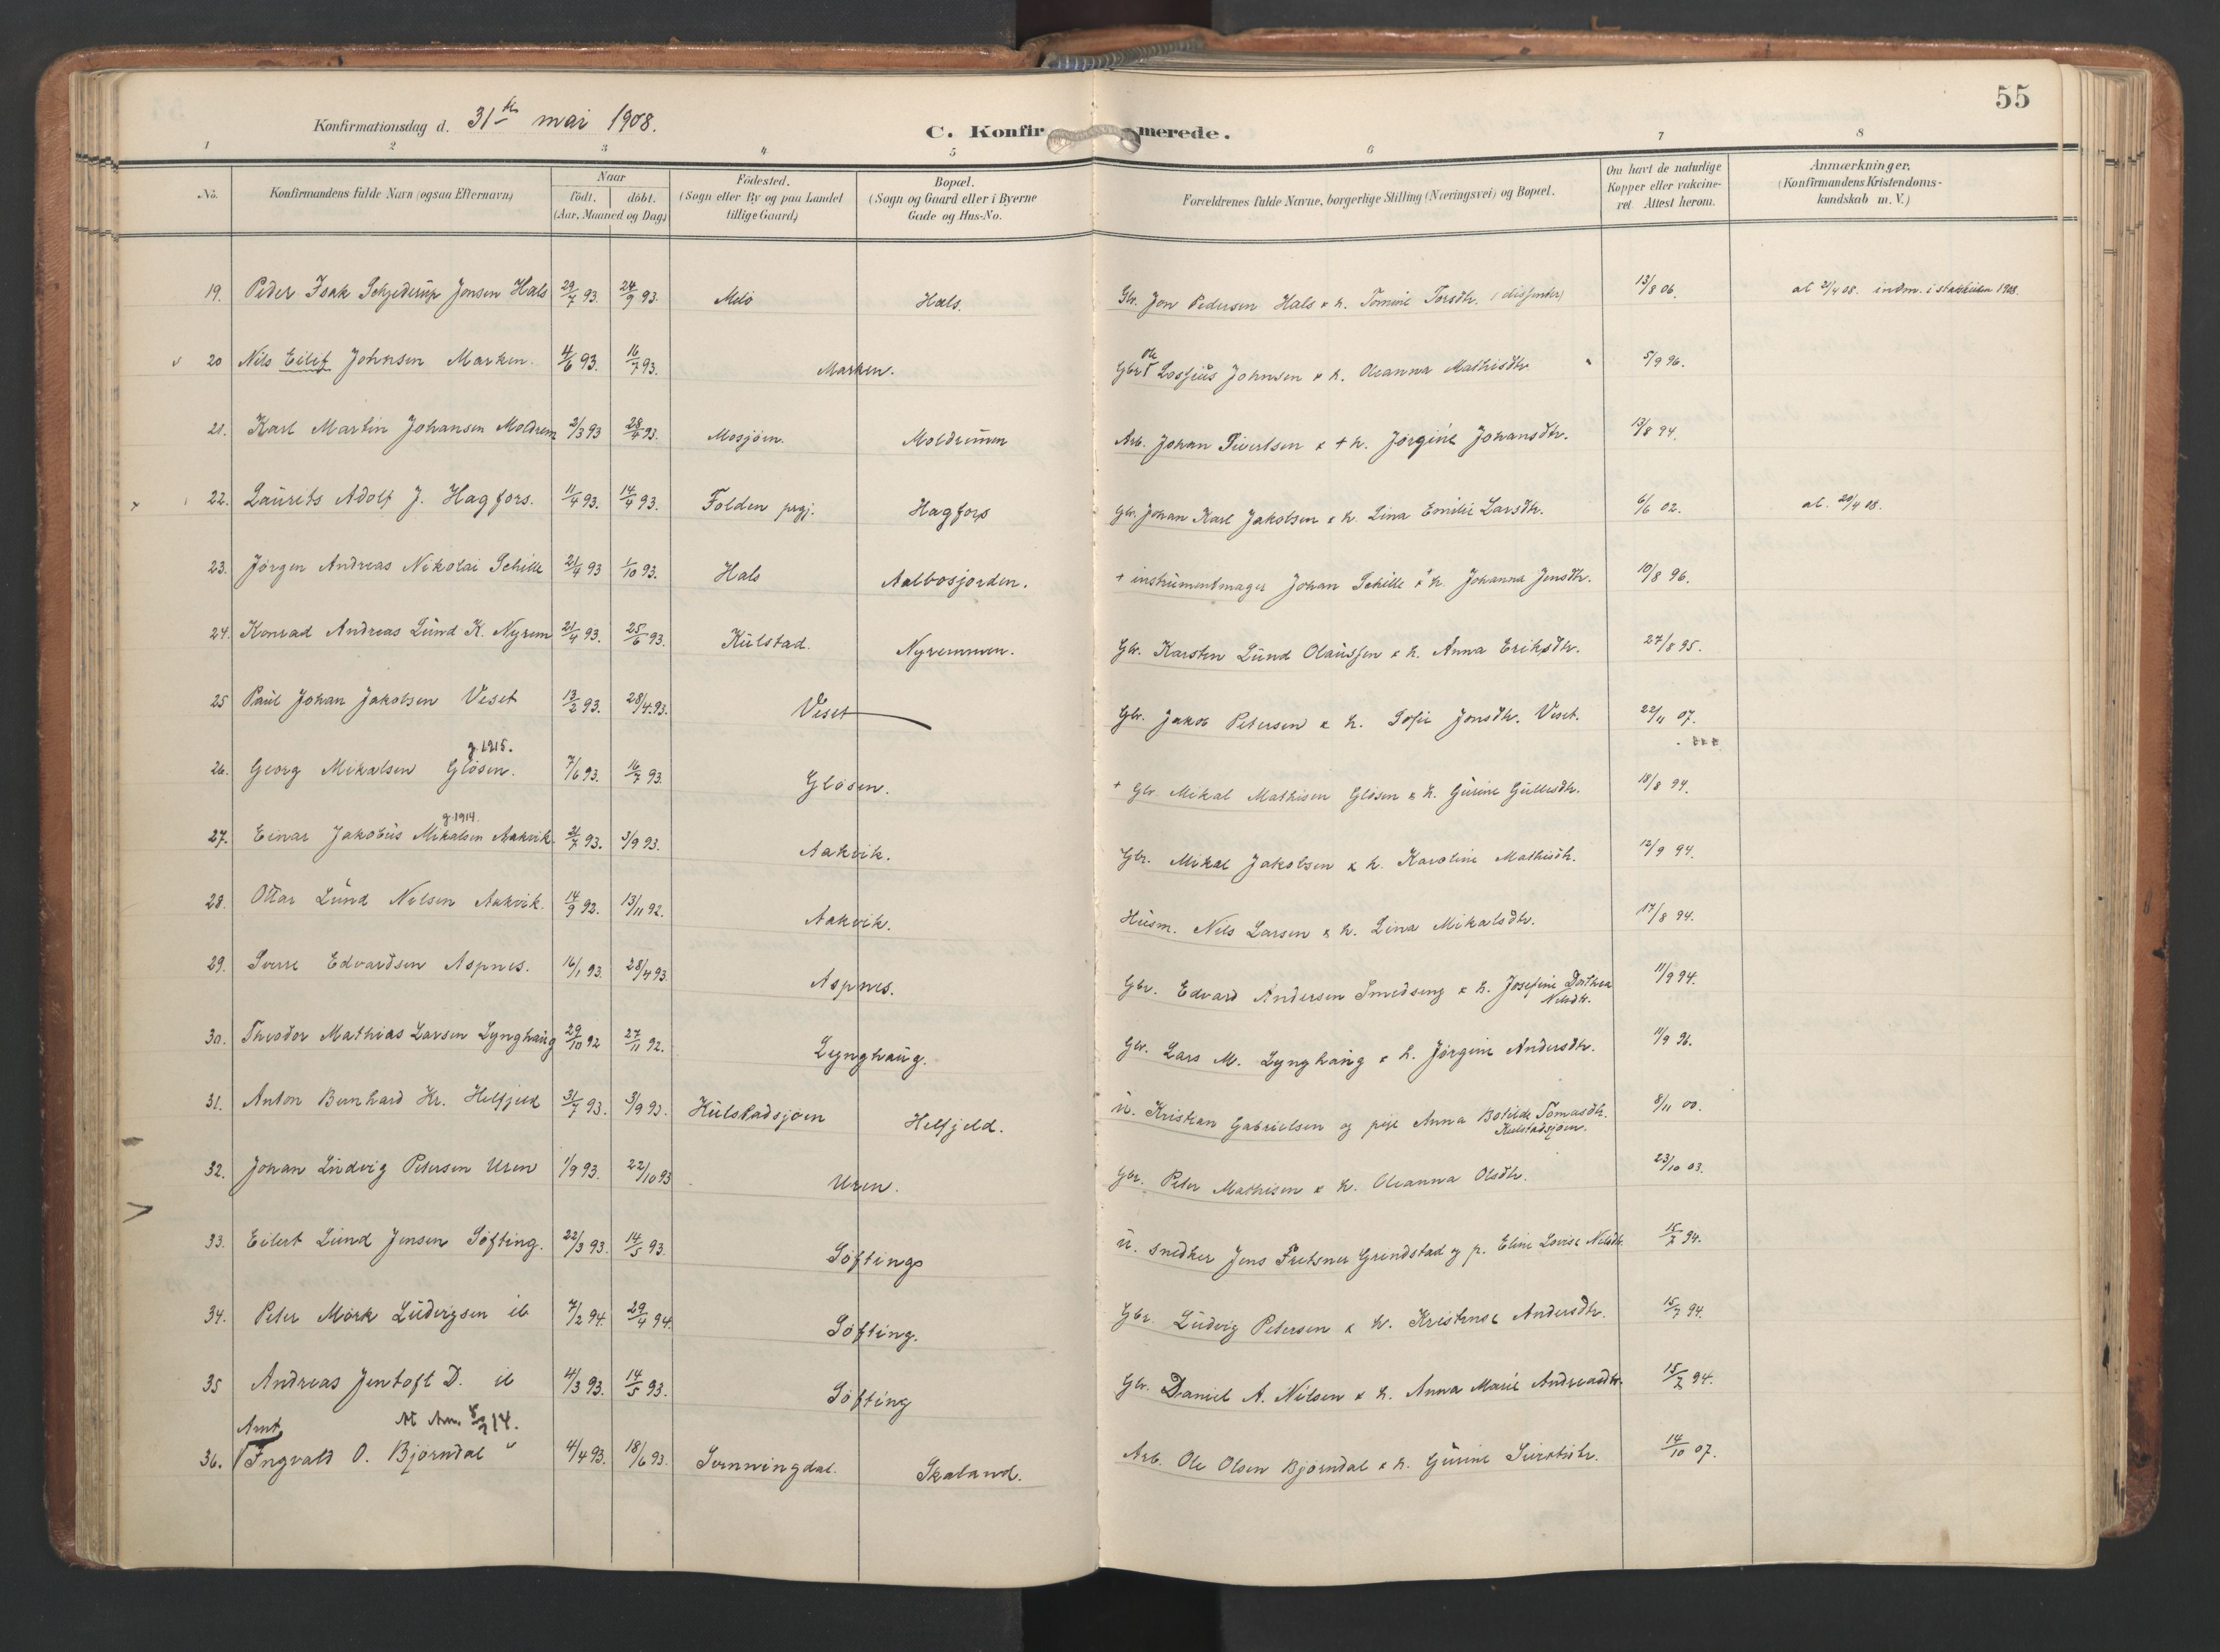 55
Konfirmationsdag d. 31te mai 1908.
C. Konfirmerede.
1 2 3 4 5 6 7 8
No. Konfirmandens fulde Navn (ogsaa Efternavn) Naar født. døbt. (Aar, Maaned og Dag) Fødested. (Sogn eller By og paa Landet tillige Gaard) Bopæl. (Sogn og Gaard eller i Byerne Gade og Hus-No. Forældrenes fulde Navne, borgerlige Stilling (Næringsvei) og Bopæl. Om havt de naturlige Kopper eller vakcineret. Attest herom. Anmærkninger, (Konfirmandens Kristendomskundskab m. V.)
19. Peder Isak Schjederup Jonsen Hals 29/7 93. 24/9 93. Milö Hals. Gbr. Jon Pedersen Hals & h. Tomine Torsdtr. (dissenter) 13/8 06. at 2/4 08. indm. i statskirken 1908.
20 Nils Eilif Johnsen Marken. 4/6 93. 16/7 93. Marken. Gbr. Ole Lossius Johnsen & h. Oleanna Mathisdtr. 5/9 96.
21. Karl Martin Johansen Moldrem 2/3 93 28/4 93. Mosjøen. Moldremen Arb. Johan Sivertsen & + h. Jørgine Johansdtr. 13/8 94.
22. Laurits Adolf J. Hagfors. 11/4 93. 14/4 93. Folden prgj. Hagfors Gbr. Johan Karl Jakobsen & h. Lina Emilie Larsdtr. 6/6 02. at. 20/4 08.
23. Jørgen Andreas Nikolai Schille 21/4 93 1/10 93. Hals Aalbosjorden. + instrumentmager Johan Schille & + h. Johanna Jensdtr. 10/8 96.
24. Konrad Andreas Lund K. Nyrem 21/4 93. 25/6 93. Kulstad. Nyremmen. Gbr. Karsten Lund Olaussen & h. Anna Eriksdtr. 27/8 95.
25 Paul Johan Jakobsen Veset 13/2 93. 28/4 93. Veset Gbr. Jakob Petersen & h. Sofie Jonsdtr. Veset. 22/11 07.
g. 1915.
26. Georg Mikalsen Glösen. 7/6 93. 16/7 93. Glösen. + Gbr. Mikal Mathisen Glösen & h. Gurine Gullesdtr. 18/8 94.
g. 1914.
27. Einar Jakobus Mikalsen Aakvik. 2/7 93. 3/9 93. Aakvik. Gbr. Mikal Jakobsen & h. Karoline Mathisdtr. 12/9 94.
28. Ottar Lund Nilsen Aakvik. 14/9 92. 13/11 92. Aakvik. Husm. Nils Larsen & h. Lina Mikalsdtr. 17/8 94.
29. Sverre Edvardsen Aspnes. 16/1 93. 28/4 93. Aspnes. Gbr. Edvard Andersen Smedseng & h. Josefine Dorthea Nilsdtr. 11/9 94.
30. Theodor Mathias Larsen Lynghaug 29/10 92 27/11 92. Lynghaug. Gbr. Lars M. Lynghaug & h. Jørgine Andersdtr. 11/9 96.
31. Anton Bernhard Kr. Helfjeld 31/7 93. 3/9 93. Kulstadsjøen Helfjeld. u. Kristian Gabrielsen og pige Anna Botilde Tomasdtr. Kulstadsjøen. 8/11 00.
32. Johan Ludvig Petersen Uren 1/9 93. 22/10 93 Uren. Gbr. Peter Mathisen & h. Oleanna Olsdtr. 23/10 03.
33. Eilert Lund Jensen Söfting. 22/3 93. 14/5 93. Söfting u. snedker Jens Grindstad og p. Eline Lovise Nilsdtr. 15/7 94.
34. Peter Mørk Ludvigsen ib 7/2 94. 29/4 94. Söfting. Gbr. Ludvig Petersen & h. Kristense Andersdtr. 15/7 94.
35 Andreas Jentoft D. ib 4/3 93. 14/5 93. Söfting Gbr. Daniel A. Nilsen & h. Anna Marie Andreasdtr. 15/7 94.
Arnt
36. Ingvald O. Bjørndal 4/4 93. 18/6 93. Svenningdal. Skaland. Arb. Ole Olsen Bjørndal & h. Gurine 14/10 07.